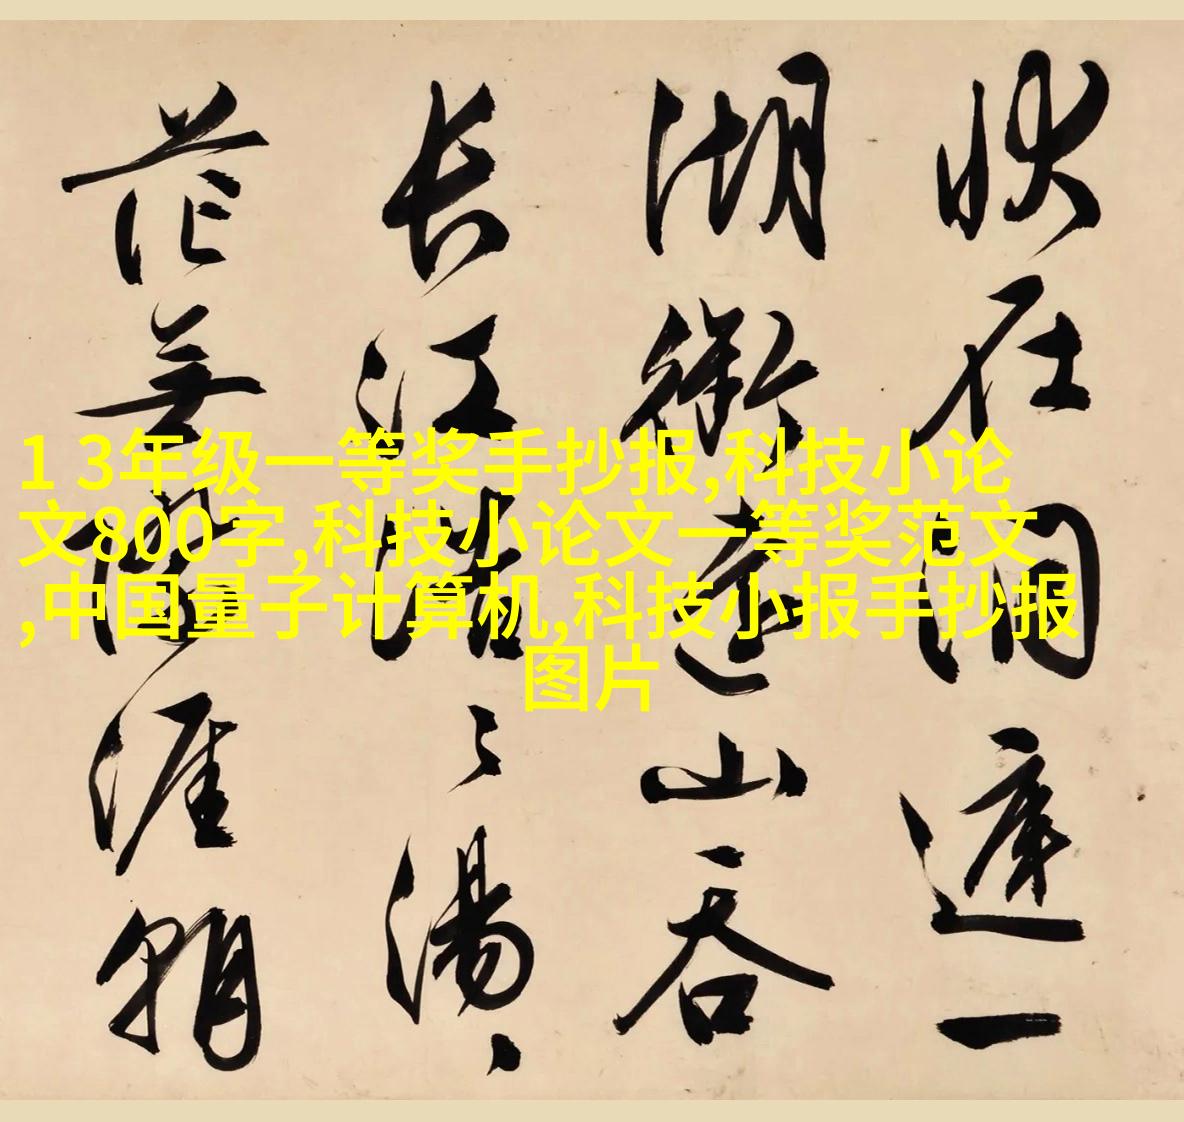 1 3年级一等奖手抄报,科技小论
文800字,科技小论文一等奖范文
,中国量子计算机,科技小报手抄报
图片
状在洞庭一
湖衔遠山吞
长江浩々湯々
无際涯朝